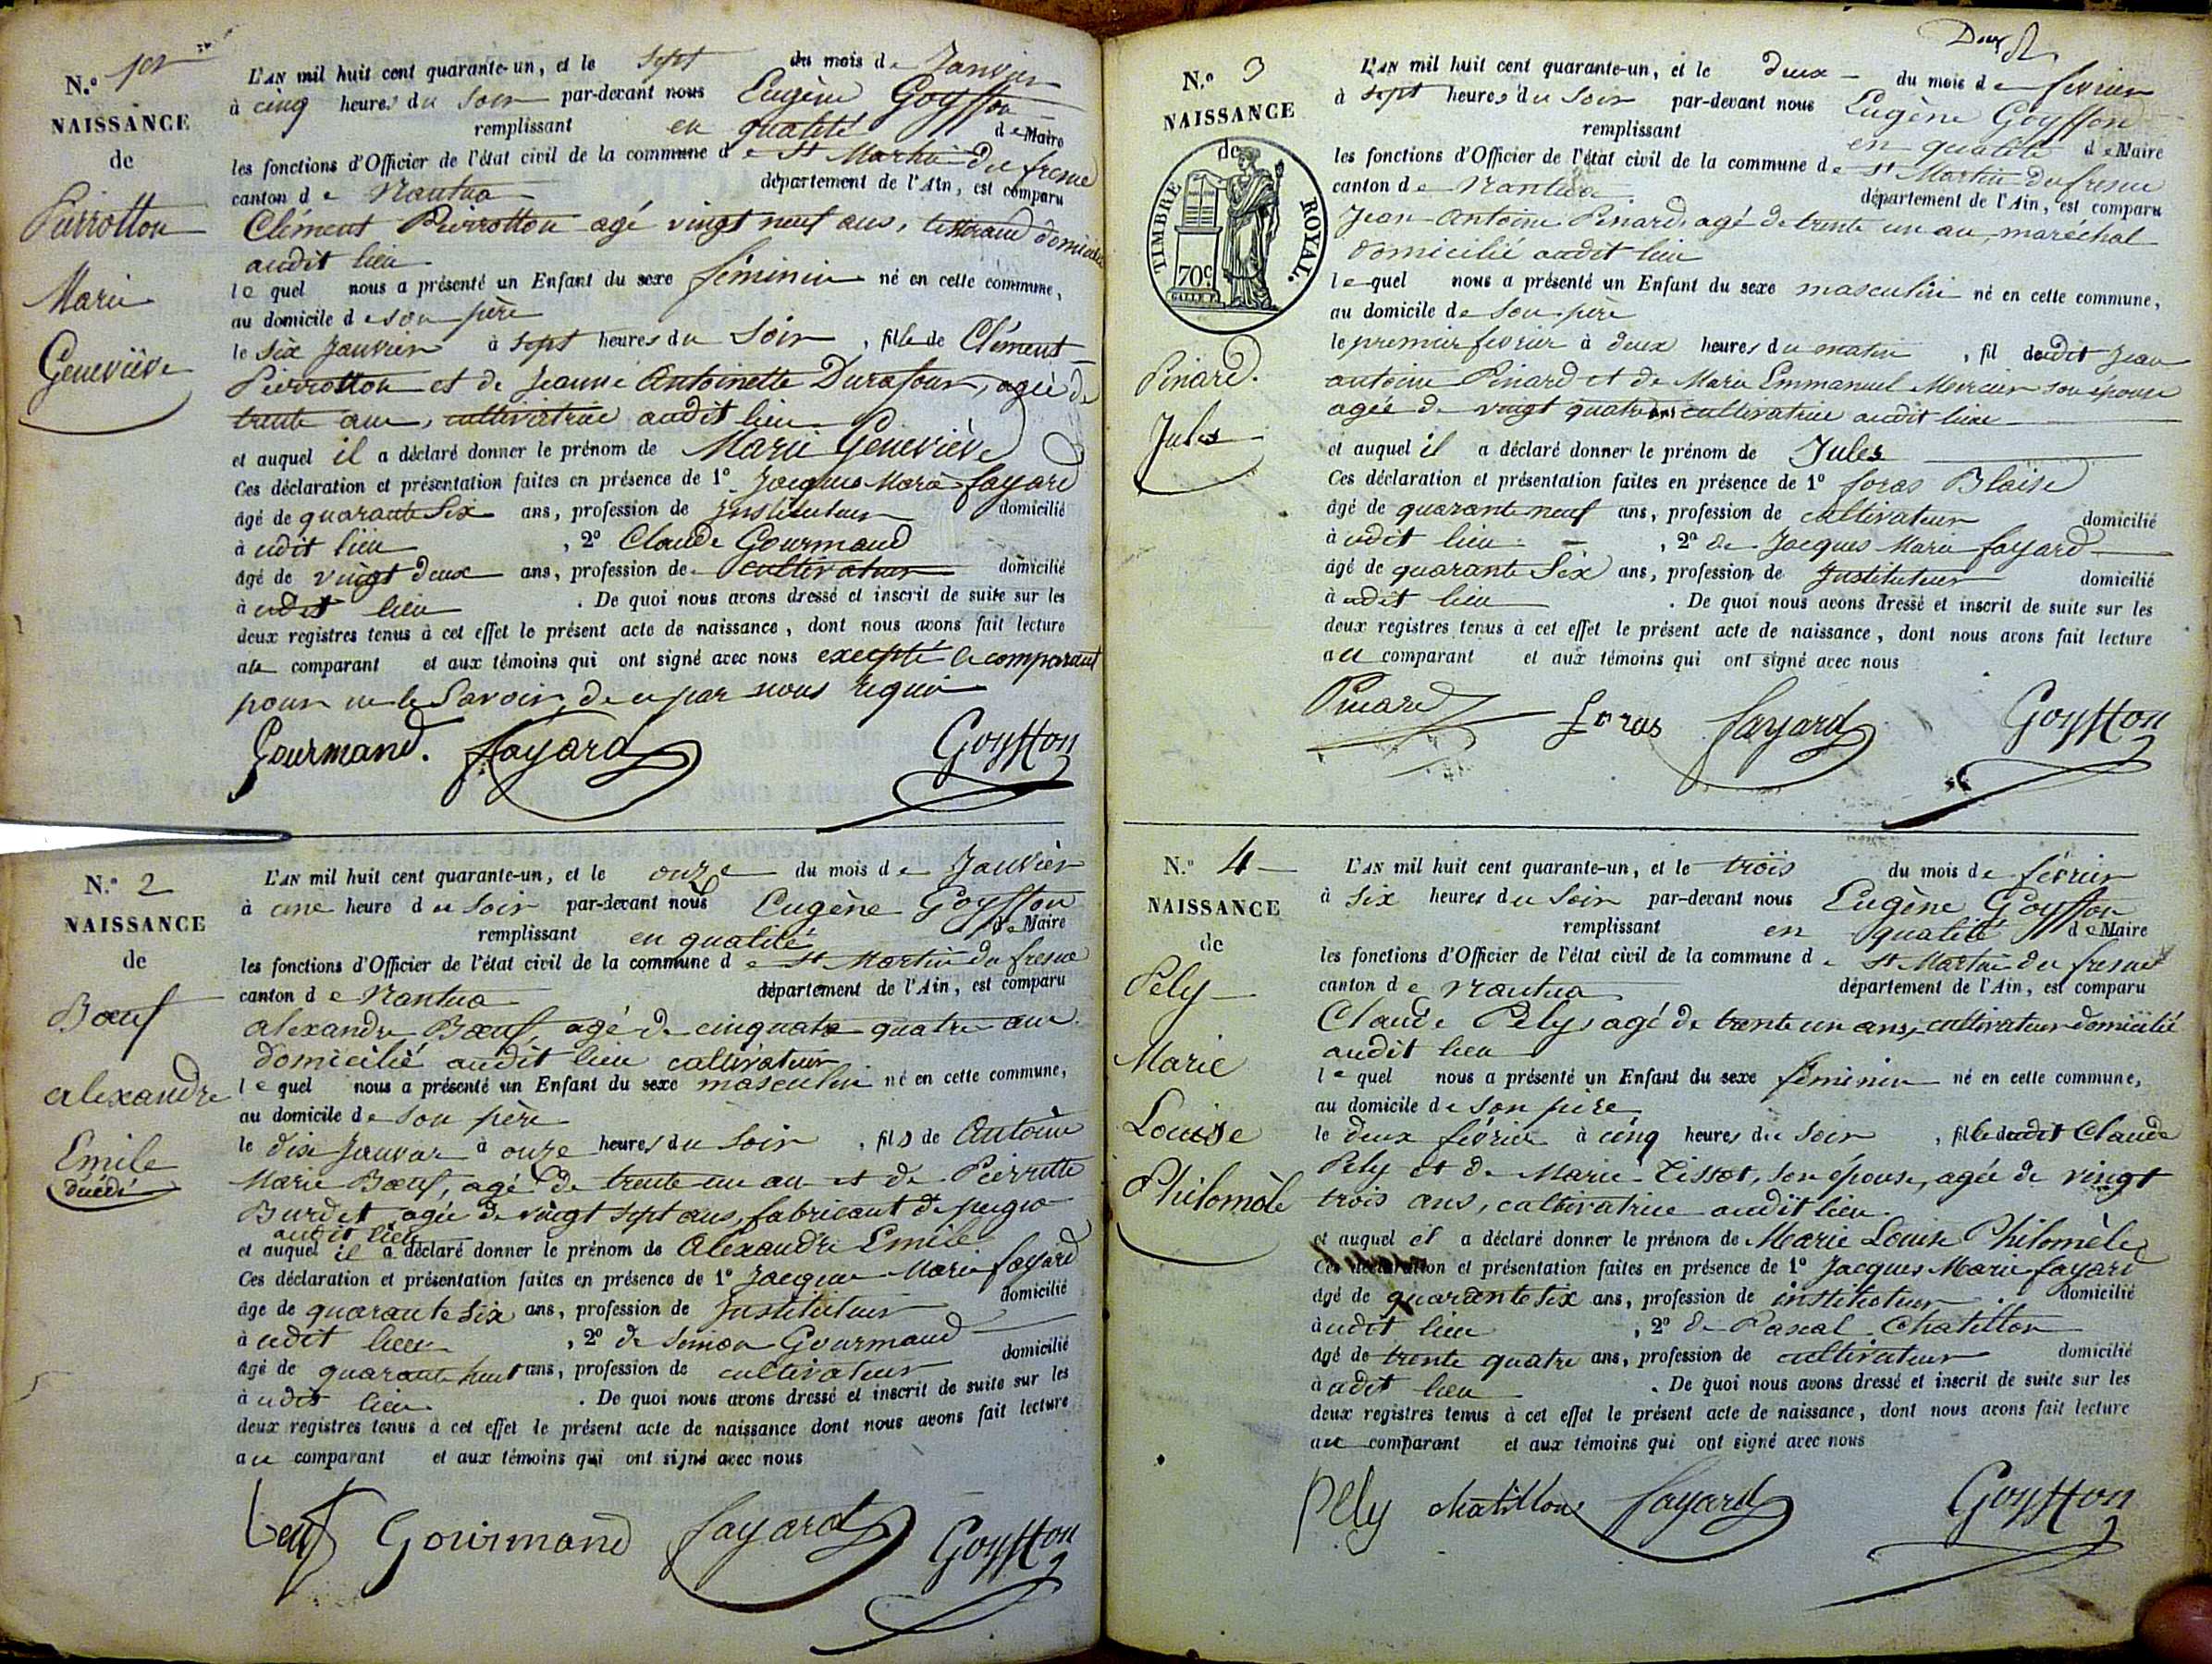 N.º 1er
NAISSANCE
de
Pierrotton
Marie
Geneviève
L'AN mil huit cent quarante-un, et le sept du mois de Janvier
à cinq heures du soir par-devant nous Eugène Goyffon
remplissant en qualité de Maire
les fonctions d'Officier de l'état civil de la commune de St Martin du fresne
canton de Nantua département de l'Ain, est comparu
Clément Pierrotton agé vingt neuf ans, tisserand domicilié
audit lieu
lequel nous a présenté un Enfant du sexe féminin né en cette commune,
au domicile de son père
le six Janvier à sept heures du soir, fille de Clément
Pierrotton et de Jeanne Antoinette Durafour, agée de
trente ans, cultivatrice audit lieu
et auquel il a déclaré donner le prénom de Marie Geneviève
Ces déclaration et présentation faites en présence de 1º Jacques Marie fayard
âgé de quarante six ans, profession de instituteur domicilié
à udit lieu, 2º Claude Gourmand
âgé de vingt deux ans, profession de cultivateur domicilié
à udit lieu. De quoi nous avons dressé et inscrit de suite sur les
deux registres tenus à cet effet le présent acte de naissance, dont nous avons fait lecture
au comparant et aux témoins qui ont signé avec nous excepté le comparant
pour ne le savoir, de ce par nous requis
Gourmand. fayard Goyffon
N.º 2
NAISSANCE
de
Bœuf
alexandre
Emile
décédé
L'AN mil huit cent quarante-un, et le onze du mois de Janvier
à une heure du soir par-devant nous Eugène Goyffon
remplissant en qualité de Maire
les fonctions d'Officier de l'état civil de la commune de St Martin du fresne
canton de Nantua département de l'Ain, est comparu
alexandre Bœuf, agé de cinquante quatre ans
domicilié audit lieu cultivateur
lequel nous a présenté un Enfant du sexe masculin né en cette commune,
au domicile de son père
le dix Janvier à onze heures du soir, fils de Antoine
Marie Bœuf, agé de trente un an et de Pierrette
Burdet agée de vingt sept ans, fabricant de peigne
audit lieu
et auquel il a déclaré donner le prénom de Alexandre Emile
Ces déclaration et présentation faites en présence de 1º Jacques Marie fayard
âgé de quarante six ans, profession de instituteur domicilié
à udit lieu, 2º de Simon Gourmand
âgé de quarante huit ans, profession de cultivateur domicilié
à udit lieu. De quoi nous avons dressé et inscrit de suite sur les
deux registres tenus à cet effet le présent acte de naissance dont nous avons fait lecture
au comparant et aux témoins qui ont signé avec nous
beuf Gourmand fayard Goyffon
Deux
N.º 3
NAISSANCE
de
TIMBRE ROYAL.
70c
Pinard.
Jules
L'AN mil huit cent quarante-un, et le deux du mois de fevrier
à sept heures du soir par-devant nous Eugène Goyffon
remplissant en qualité de Maire
les fonctions d'Officier de l'état civil de la commune de St Martin du fresne
canton de Nantua département de l'Ain, est comparu
Jean Antoine Pinard, agé de trente un an, maréchal
domicilié audit lieu
lequel nous a présenté un Enfant du sexe masculin né en cette commune,
au domicile de son père
le premier fevrier à deux heures du matin, fil dudit Jean
antoine Pinard et de Marie Emmanuel Mercier son épouse
agée de vingt quatre ans cultivatrice audit lieu
et auquel il a déclaré donner le prénom de Jules
Ces déclaration et présentation faites en présence de 1º foras Blaise
âgé de quarante neuf ans, profession de cultivateur domicilié
à udit lieu, 2º de Jacques Marie fayard
âgé de quarante six ans, profession de instituteur domicilié
à udit lieu. De quoi nous avons dressé et inscrit de suite sur les
deux registres tenus à cet effet le présent acte de naissance, dont nous avons fait lecture
au comparant et aux témoins qui ont signé avec nous
Pinard foras fayard Goyffon
N.º 4
NAISSANCE
de
Pely
Marie
Louise
Philomèle
L'AN mil huit cent quarante-un, et le trois du mois de février
à six heures du soir par-devant nous Eugène Goyffon
remplissant en qualité de Maire
les fonctions d'Officier de l'état civil de la commune de St Martin du fresne
canton de Nantua département de l'Ain, est comparu
Claude Pely, agé de trente un ans, cultivateur domicilié
audit lieu
lequel nous a présenté un Enfant du sexe féminin né en cette commune,
au domicile de son père
le deux février à cinq heures du soir, fille dudit Claude
Pely et de Marie Tissot, son épouse, agée de vingt
trois ans, cultivatrice audit lieu
et auquel il a déclaré donner le prénom de Marie Louise Philomèle
Ces déclaration et présentation faites en présence de 1º Jacques Marie fayard
âgé de quarante six ans, profession de instituteur domicilié
à udit lieu, 2º de Pascal Chatillon
âgé de trente quatre ans, profession de cultivateur domicilié
à udit lieu. De quoi nous avons dressé et inscrit de suite sur les
deux registres tenus à cet effet le présent acte de naissance, dont nous avons fait lecture
au comparant et aux témoins qui ont signé avec nous
Pely chatillon fayard Goyffon